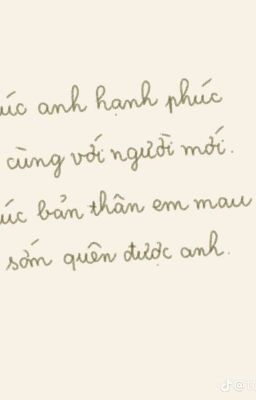 úc anh hạnh phúc
cùng với người mới.
úc bản thân em mau
sớm quên được anh.